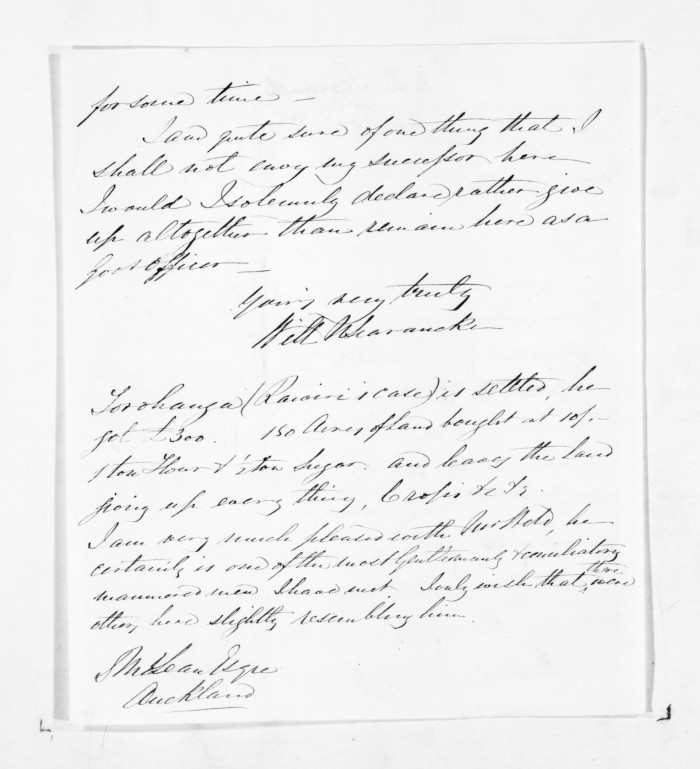 for some time —
I am quite sure of one thing that I
shall not envy my successor here
I would I solemnly declare rather give
up altogether than remain here as a
Govt officer —
Yours very truly
Will N Searancke
Torohanga (Rawiri's case) is settled, he
got £300. 150 Acres of land bought at 10/-
1 ton Flour & ½ ton Sugar. and leaves the land
giving up every thing, Crops &c &c.
I am very much pleased with he
certainly is one of the most Gentlemanly & conciliatory
mannered men I have met. I only wish that there were
others here slightly resembling him.
McLean Esqre
Auckland